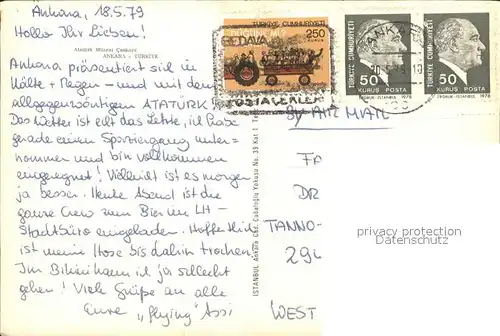 Ankara, 18.5.79
Hallo Ihr Lieben!
Atatürk
ANKARA - TÜRKİYE
Ankara präsentiert sich in
Kälte + Regen - und mit dem
allgegenwärtigen ATATÜRK
Das Wetter ist echt das Letzte, ich habe
gerade einen Spaziergang unter=
nommen und bin vollkommen
eingeregnet! Vielleicht ist es morgen
ja besser. Heute Abend ist die
ganze Crew zum Bier im LH-
Stadtbüro eingeladen. Hoffentlich
ist meine Hose bis dahin trocken,
Im Bikini kann ich ja schlecht
gehen! Viele Grüße an alle
Eure "flying" Assi
İSTANBUL Ankara Cad. Cağaloğlu Yokuşu No. 39 Kat 1
TÜRKİYE CUMHURİYETİ
250
KURUŞ
BEDAVA
POSTA
TÜRKİYE CUMHURİYETİ
50
KURUŞ POSTA
1978
TÜRKİYE CUMHURİYETİ
50
KURUŞ POSTA
1978
ANKARA
By AIR MAIL
FA
DR
TANNO-
29
WEST
privacy protection
Datenschutz